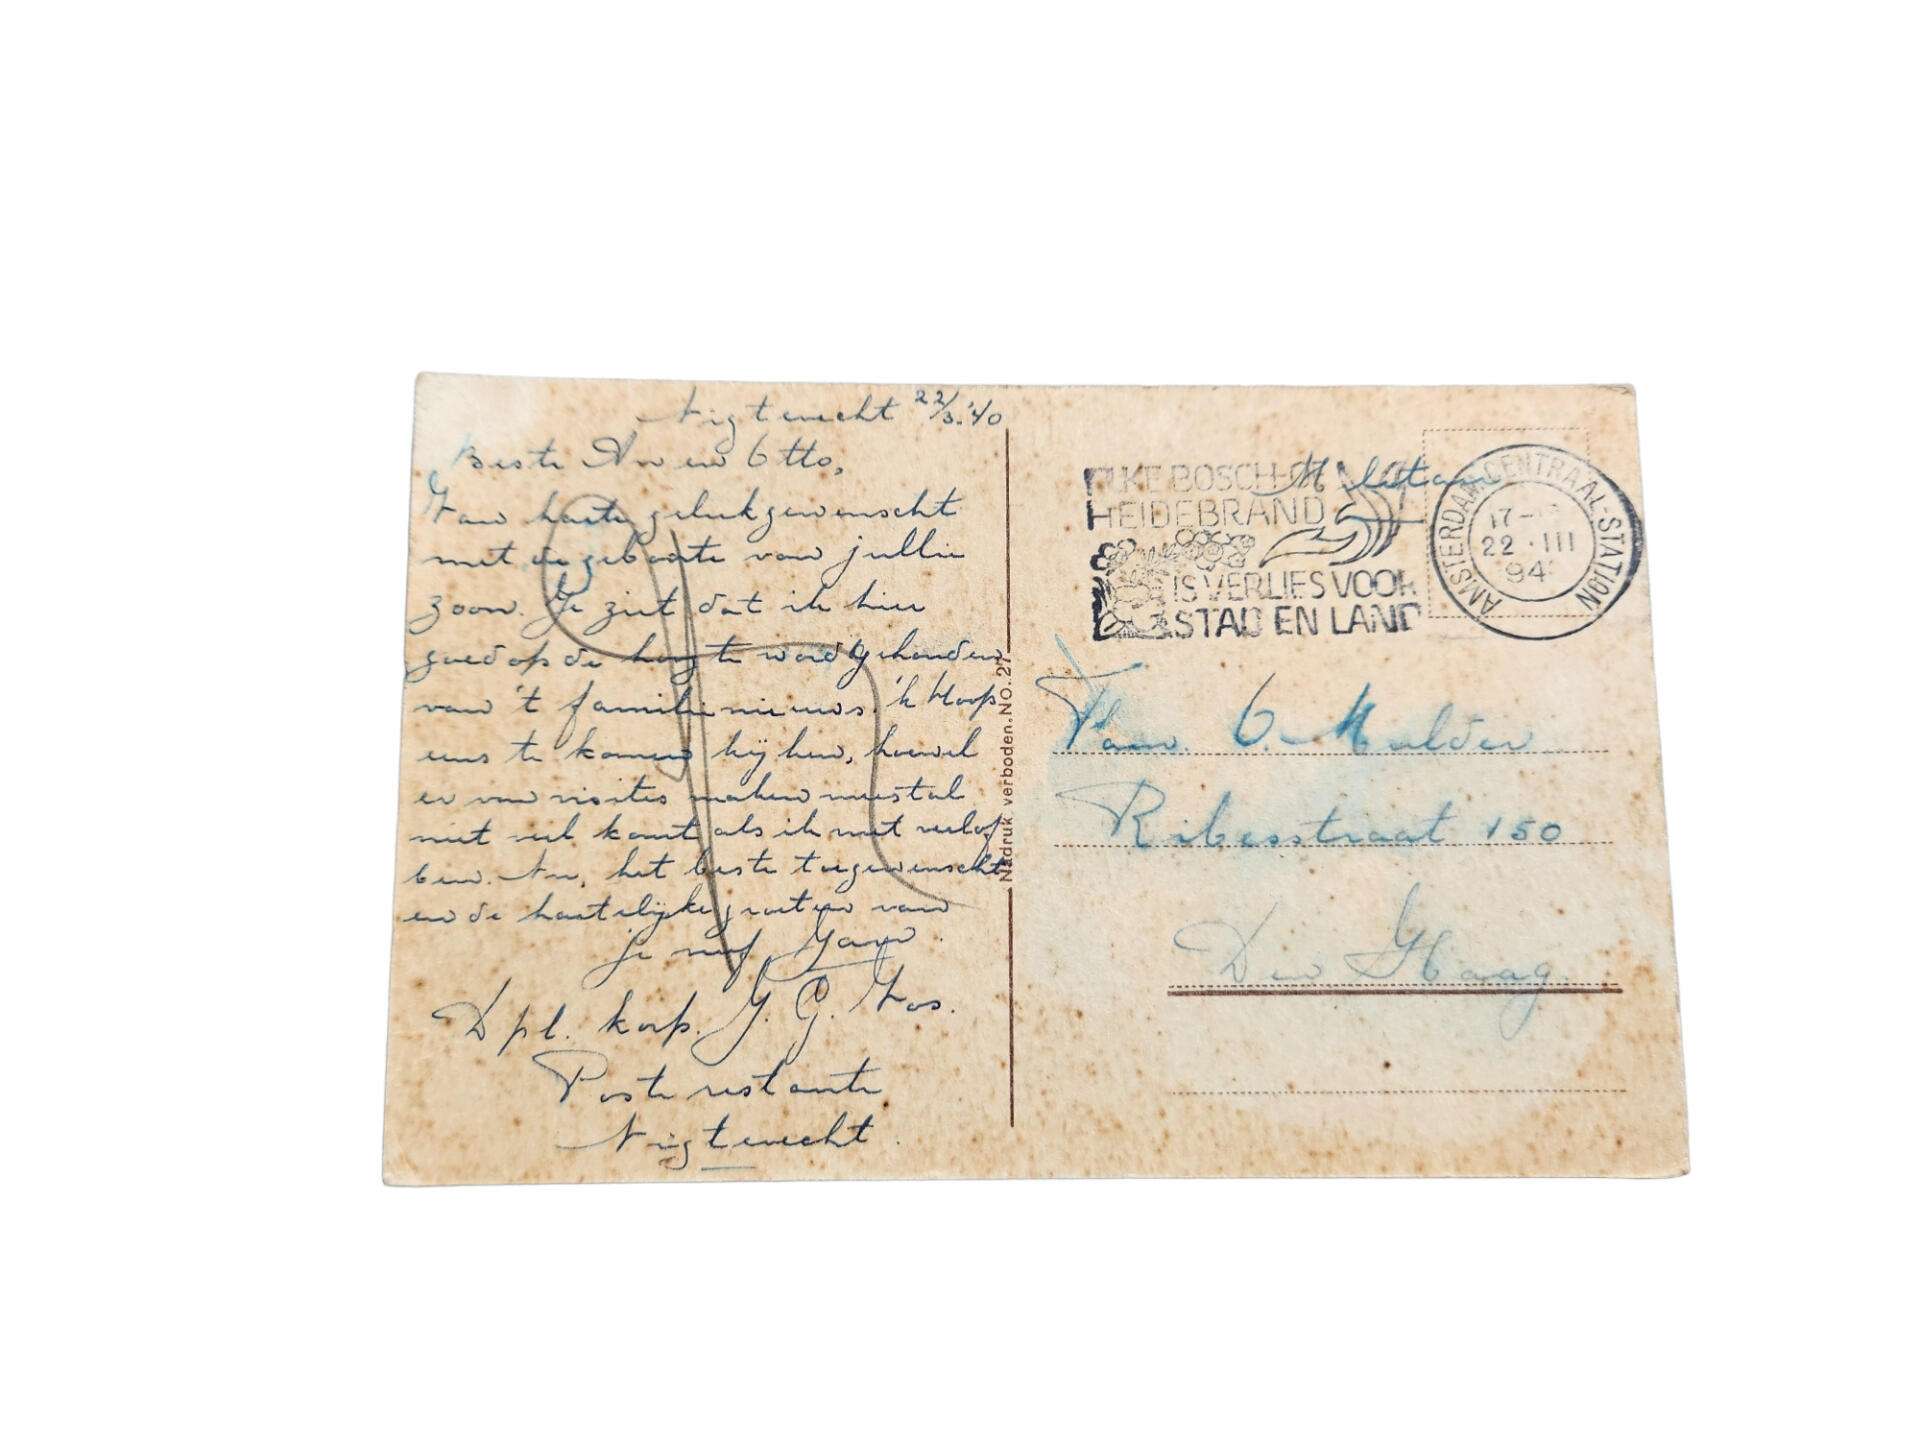 Nigtevecht 22/3.'40
Beste en Otto,
Van harte gelukgewenscht
met de geboorte van jullie
zoon. Je ziet dat ik hier
goed op de hoogte word gehouden
van 't familienieuws. 'k Hoop
eens te komen kijken, hoewel
er van visites maken meestal
niet veel komt als ik met verlof
ben. Nu, het beste toegewenscht
en de hartelijke groeten van
je neef
Dpl. korp. G. G. Vos.
Poste restante
Nigtevecht.
Nadruk verboden. No. 27
Militair
ELKE BOSCH- OF
HEIDEBRAND
IS VERLIES VOOR
STAD EN LAND
AMSTERDAM CENTRAAL-STATION
17-
22 · III
94
Fam. O. Mulder
Ribesstraat 150
Den Haag.